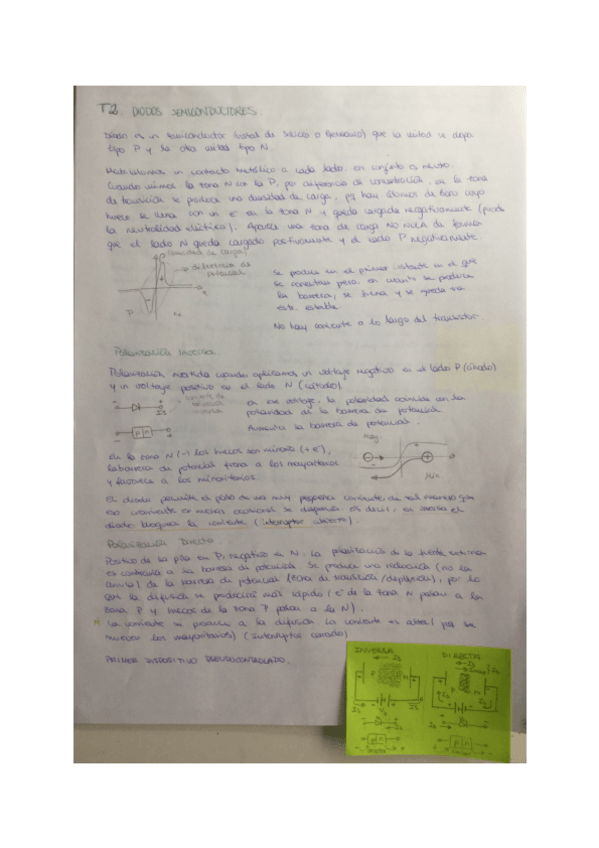 T2. DIODOS SEMICONDUCTORES.
Diodo es un semiconductor (cristal de Silicio o Germanio) que la mitad se dopa
tipo P y la otra mitad tipo N.
Metalizamos un contacto metálico a cada lado. en conjunto es neutro.
Cuando unimos la zona N con la P, por diferencia de concentración, en la zona
de transición se produce una densidad de carga, pq hay átomos de Boro cuyo
hueco se llena con un e⁻ en la zona N y queda cargada negativamente (pierde
la neutralidad eléctrica). Aparece una zona de carga NO nula de forma
que el lado N queda cargado positivamente y el lado P negativamente.
densidad de carga
diferencia de
potencial
P
Se produce en el primer instante en el que
se conectan pero en cuanto se produce
la barrera, se frena y se queda
estable.
No hay corriente a lo largo del transistor.
Polarización Inversa.
Polarización invertida cuando aplicamos un voltaje negativo en el lado P (ánodo)
y un voltaje positivo en el lado N (cátodo).
P N
en ese voltaje, la polaridad coincide con la
polaridad de la barrera de potencial.
Aumenta la barrera de potencial.
en la zona N (-) los huecos son minoría (+ e⁻),
la barrera de potencial frena a los mayoritarios
y favorece a los minoritarios.
May.
Min.
el diodo permite el paso de una muy pequeña corriente de tal manera que
esa corriente en muchas ocasiones se desprecia. es decir, en inversa el
diodo bloquea la corriente (interruptor abierto).
Polarización Directa.
Positivo de la pila en P, negativo en N. La polarización de la fuente externa
es contraria a la barrera de potencial. Se produce una reducción (no la
anula) de la barrera de potencial (zona de transición/deplexión), por lo
que la difusión se producirá más rápido (e⁻ de la zona N pasan a la
zona P y huecos de la zona P pasan a la N).
* La corriente se produce a la difusión. La corriente es alta (pq se
mueven los mayoritarios) (interruptor cerrado)
PRIMER DISPOSITIVO PSEUDOCONTROLADO.
INVERSA
DIRECTA
P N
P N